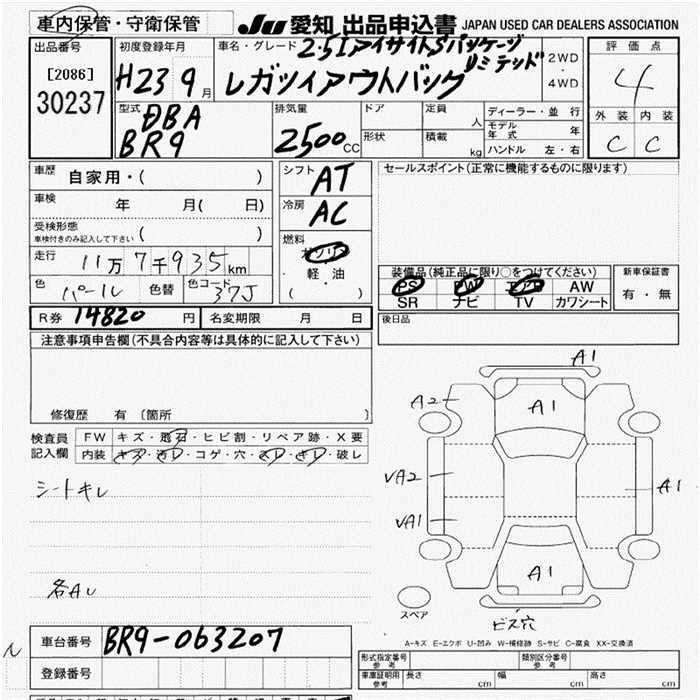 車内保管・守衛保管
JU 愛知 出品申込書 JAPAN USED CAR DEALERS ASSOCIATION
出品番号
[2086]
30237
初度登録年月
H23 9月
車名・グレード
2.5IアイサイトSパッケージ
リミテッド
レガツィアウトバック
2WD
・
4WD
評価点
4
外装 内装
C C
型式
DBA
BR9
排気量
2500CC
ドア
形状
定員 人
積載 kg
ディーラー・並行
モデル年式 年
ハンドル 左・右
車歴
自家用・( )
車検 年 月( 日)
受検形態
車検付きのみ記入して下さい ( )
走行 11万7千935km
色 パール 色替 色コード 37J
シフト
AT
冷房
AC
燃料
ガソリン
・
軽・油
( )
セールスポイント(正常に機能するものに限ります)
装備品(純正品に限り○をつけてください)
PS PW エアB AW
SR ナビ TV カワシート
新車保証書
有・無
R券 14820 円 名変期限 月 日
後日品
注意事項申告欄(不具合内容等は具体的に記入して下さい)
修復歴 有 〔箇所 〕
検査員
記入欄
FW キズ・飛石・ヒビ割・リペア跡・X要
内装 キズ・汚レ・コゲ・穴・スレ・キレ・破レ
シートキレ
各AU
A1
A2
A1
VA2
A1
VA1
A1
スペア
ビス穴
A-キズ E-エクボ U-凹み W-補修跡 S-サビ C-腐食 XX-交換済
車台番号 BR9-063207
登録番号
型式指定番号
参考
類別区分番号
参考
車庫証明用
参考
長さ cm 幅 cm 高さ cm